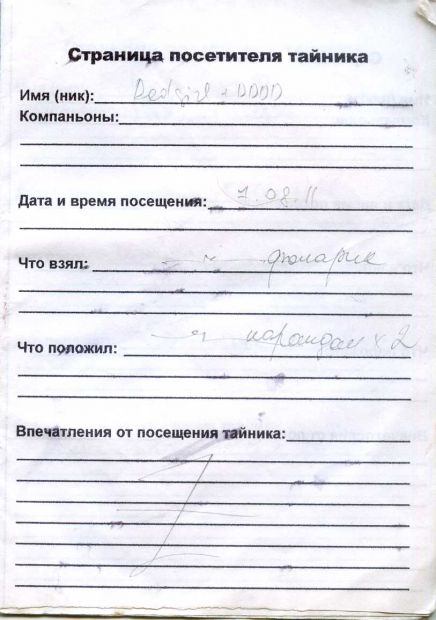 Страница посетителя тайника
Имя (ник): Redgirl + DDDD
Компаньоны:
Дата и время посещения: 7.08.11
Что взял: фонарик
Что положил: карандаш х 2
Впечатления от посещения тайника: